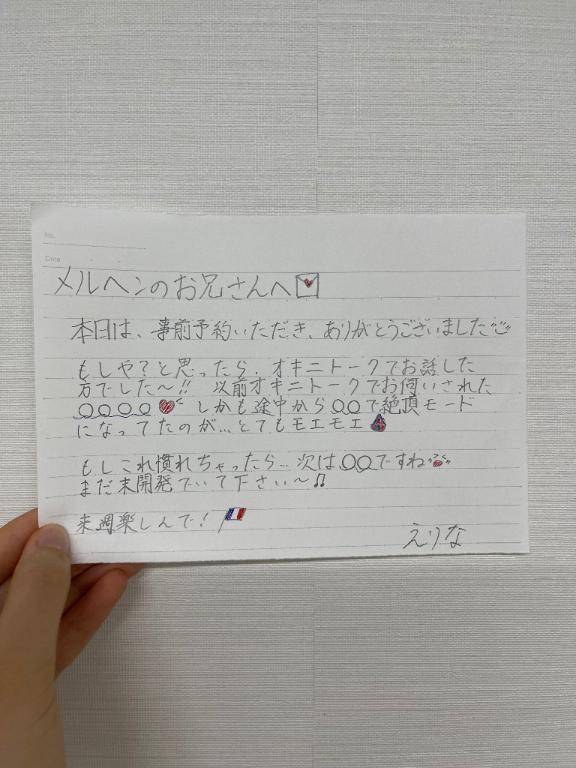 No.
Date
メルヘンのお兄さんへ
本日は、事前予約いただき、ありがとうございました
もしや?と思ったら、オキニトークでお話した
方でした〜!! 以前オキニトークでお伺いされた
○○○○ しかも途中から○○で絶頂モード
になってたのが…とてもモエモエ
もしこれ慣れちゃったら…次は○○ですね
まだ未開発でいて下さい〜♫
来週楽しんで!
えりな